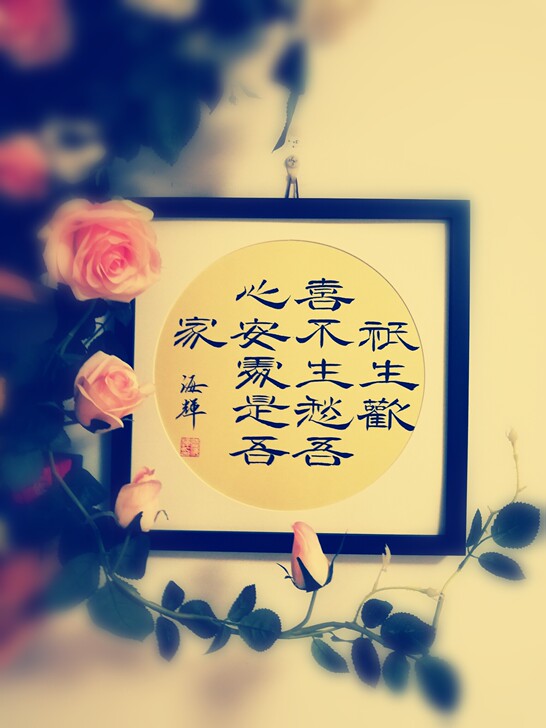 祇生歡
喜不生愁吾
心安處是吾
家
海輝